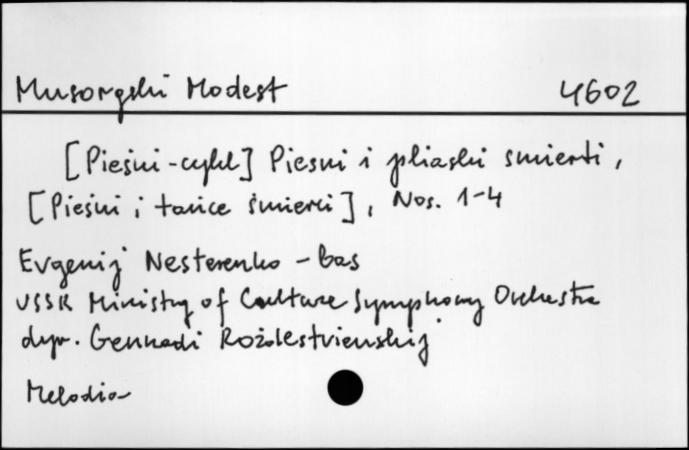 Musorgski Modest 4602
[Pieśni-cykl] Piesni i pliaski smierti,
[Pieśni i tańce śmierci], Nos. 1-4
Evgenij Nesterenko - bas
USSR Ministry of Culture Symphony Orchestra
dyr. Gennadi Rożdestvienskij
Melodia